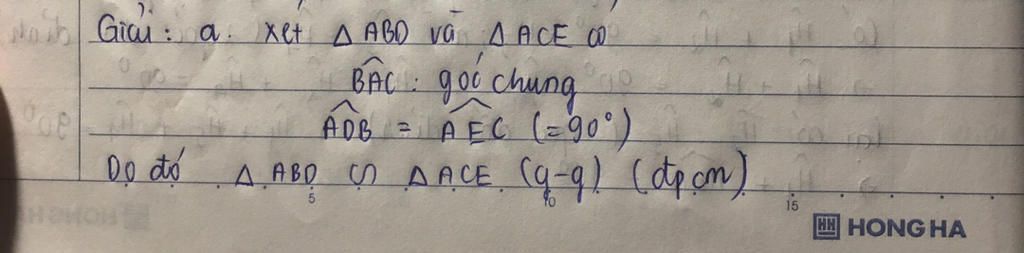 Giải: a. xét △ ABD và △ ACE có
B̂AC: góc chung
ÂDB = ÂEC (=90°)
Do đó △ ABD ᔕ △ ACE (g-g) (đpcm)
5 10 15
HH HONG HA